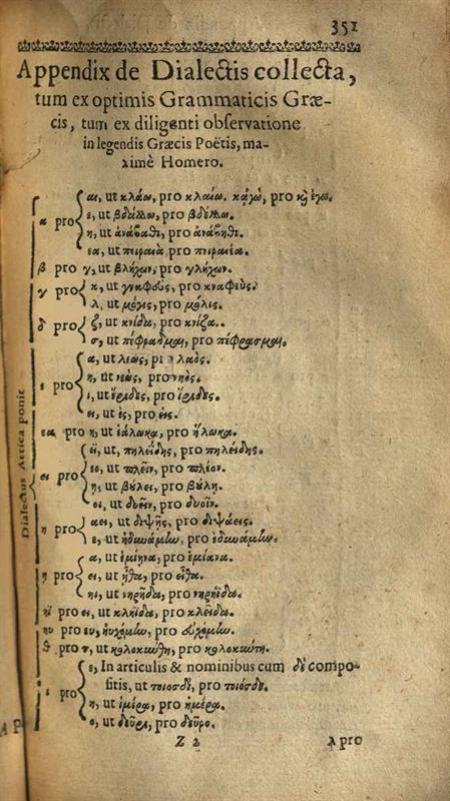 351
Appendix de Dialectis collecta,
tum ex optimis Grammaticis Græ-
cis, tum ex diligenti observatione
in legendis Græcis Poëtis, ma-
ximè Homero.
Dialectus Attica ponit
α pro
αι, ut κλάω, pro κλαίω. κᾀγὼ, pro κ ἐγω.
ε, ut βδάλλω, pro βδέλλω.
η, ut ἀνάβαθι, pro ἀνάβηθι.
εα, ut πιφαιὰ, pro πιφαιέα.
β pro γ, ut βλήχων, pro γλήχων.
γ pro
κ, ut γναφεὺς, pro κναφεὺς.
λ, ut μόγις, pro μόλις.
δ pro
ζ, ut κνίδα, pro κνίζα.
σ, ut πέφραδμαι, pro πέφρασμαι.
ε pro
α, ut λεὼς, pro λαὸς.
η, ut νεὼς, pro νηὸς.
ι, ut pro
ει, ut ἐς, pro εἰς.
εα pro η, ut ἑάλωκα, pro ἥλωκα.
ει pro
εϊ, ut, πηλείδης, pro πηλέιδης.
εο, ut πλεῖν, pro πλέον.
ῃ, ut βύλει, pro βύλῃ.
οι, ut δυεῖν, pro δυοῖν.
η pro
αει, ut διψῇς, pro διψάεις.
ε, ut ἠδυνάμην, pro ἐδυνάμην.
ῃ pro
α, ut ἐμίηνα, pro ἐμίανα.
ει, ut pro
ηι, ut νηρῇδα, pro νηρηΐδα.
ηϊ pro ει, ut κληῖδα, pro κλεῖδα.
ηυ pro ευ, ηὐχόμην, pro εὐχόμην.
θ pro τ, ut κολοκύνθη, pro κολοκύντη.
ι pro
ε, In articulis & nominibus cum δὲ compo-
sitis, ut τοιοσδὶ, pro τοιόσδε.
η, ut ἱμέρα, pro ἡμέρα.
ο, ut δεῦρι, pro δεῦρο.
Z 2
λ pro